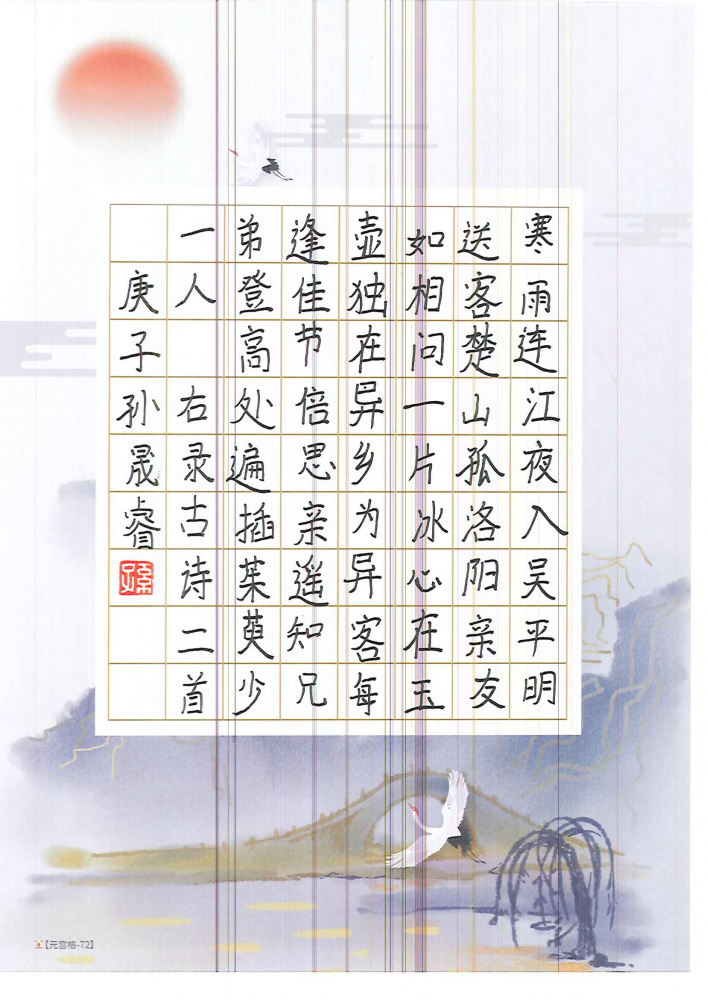 寒雨连江夜入吴平明
送客楚山孤洛阳亲友
如相问一片冰心在玉
壶独在异乡为异客每
逢佳节倍思亲遥知兄
弟登高处遍插茱萸少
一人 右录古诗二首
庚子孙晟睿
孫
【元宫格-72】